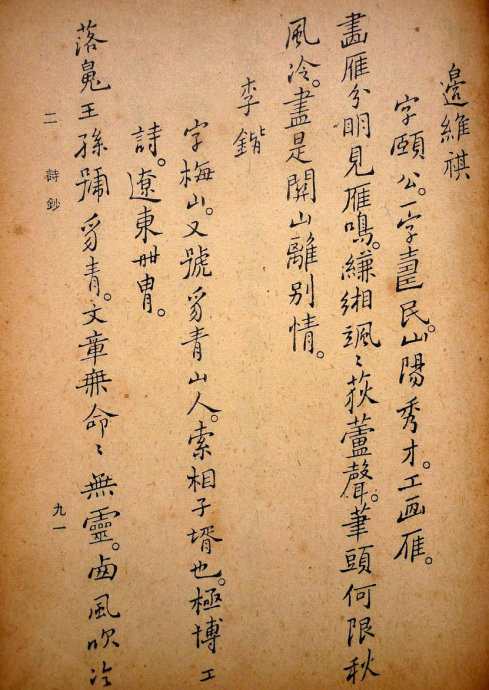 邊維祺
字頤公。一字壽民。山陽秀才。工画雁。
畵雁分明見雁鳴。縑緗颯〻荻蘆聲。筆頭何限秋
風冷。盡是關山離别情。
李鍇
字梅山。又號豸青山人。索相子壻也。極博工
詩。遼東世胄。
落魄王孫號豸青。文章無命〻無靈。卥風吹冷
二 詩鈔 九一